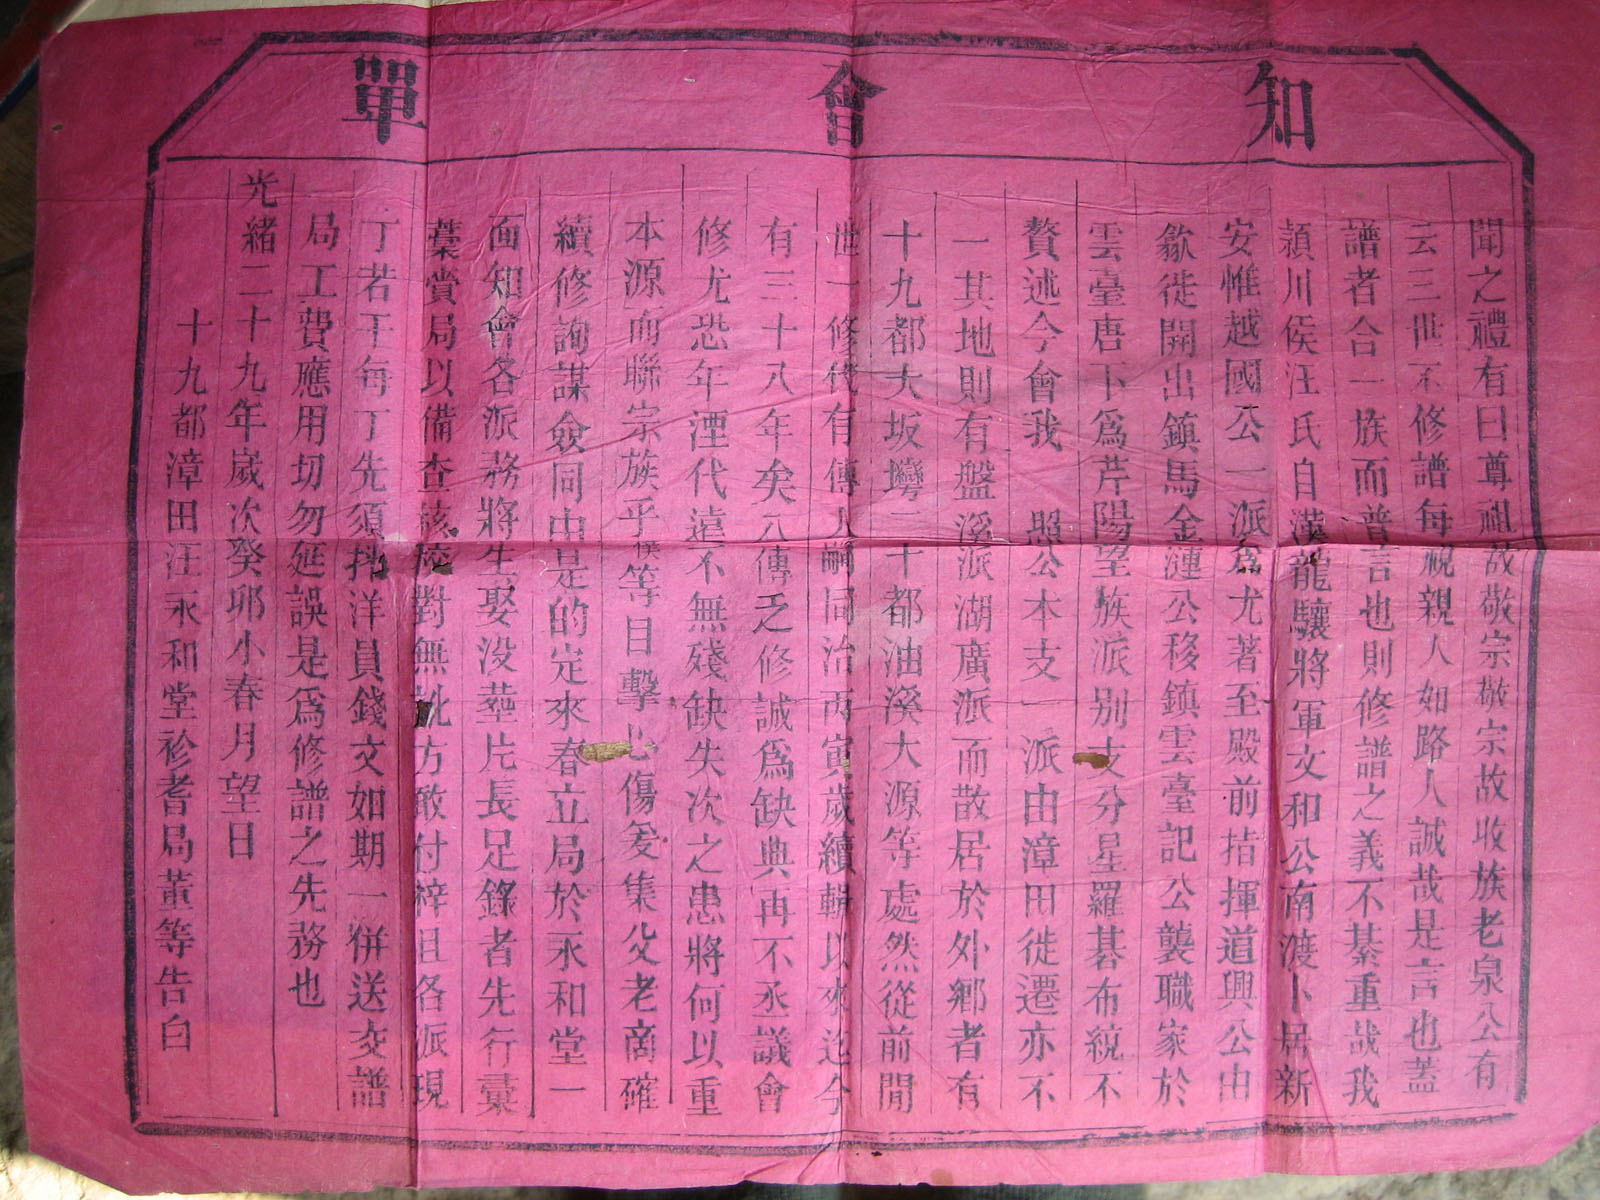 知會單
聞之禮有曰尊祖故敬宗敬宗故收族老泉公有
云三世不修譜每視親人如路人誠哉是言也蓋
譜者合一族而普言也則修譜之義不綦重哉我
潁川侯汪氏自漢龍驤將軍文和公南渡卜居新
安惟越國公一派爲尤著至殿前指揮道興公由
歙徙開出鎮馬金漣公移鎮雲臺記公襲職家於
雲臺唐下爲芹陽望族派别支分星羅碁布統不
贅述今會我 照公本支一派由漳田徙遷亦不
一其地則有盤溪派湖廣派而散居於外鄉者有
十九都大坂塆二十都油溪大源等處然從前閒
世一修代有傳人嗣同治丙寅歲續輯以來迄今
有三十八年矣八傳乏修誠爲缺典再不丞議會
修尤恐年湮代遠不無殘缺失次之患將何以重
本源而聯宗族乎僕等目擊心傷爰集父老商確
續修詢謀僉同由是的定來春立局於永和堂一
面知會各派務將生娶没塟片長足錄者先行彙
藁賫局以備查核校對無訛方敢付梓且各派現
丁若干每丁先須洋員錢文如期一併送交譜
局工費應用切勿延誤是爲修譜之先務也
光緒二十九年歲次癸邜小春月望日
十九都漳田汪永和堂衿耆局董等告白